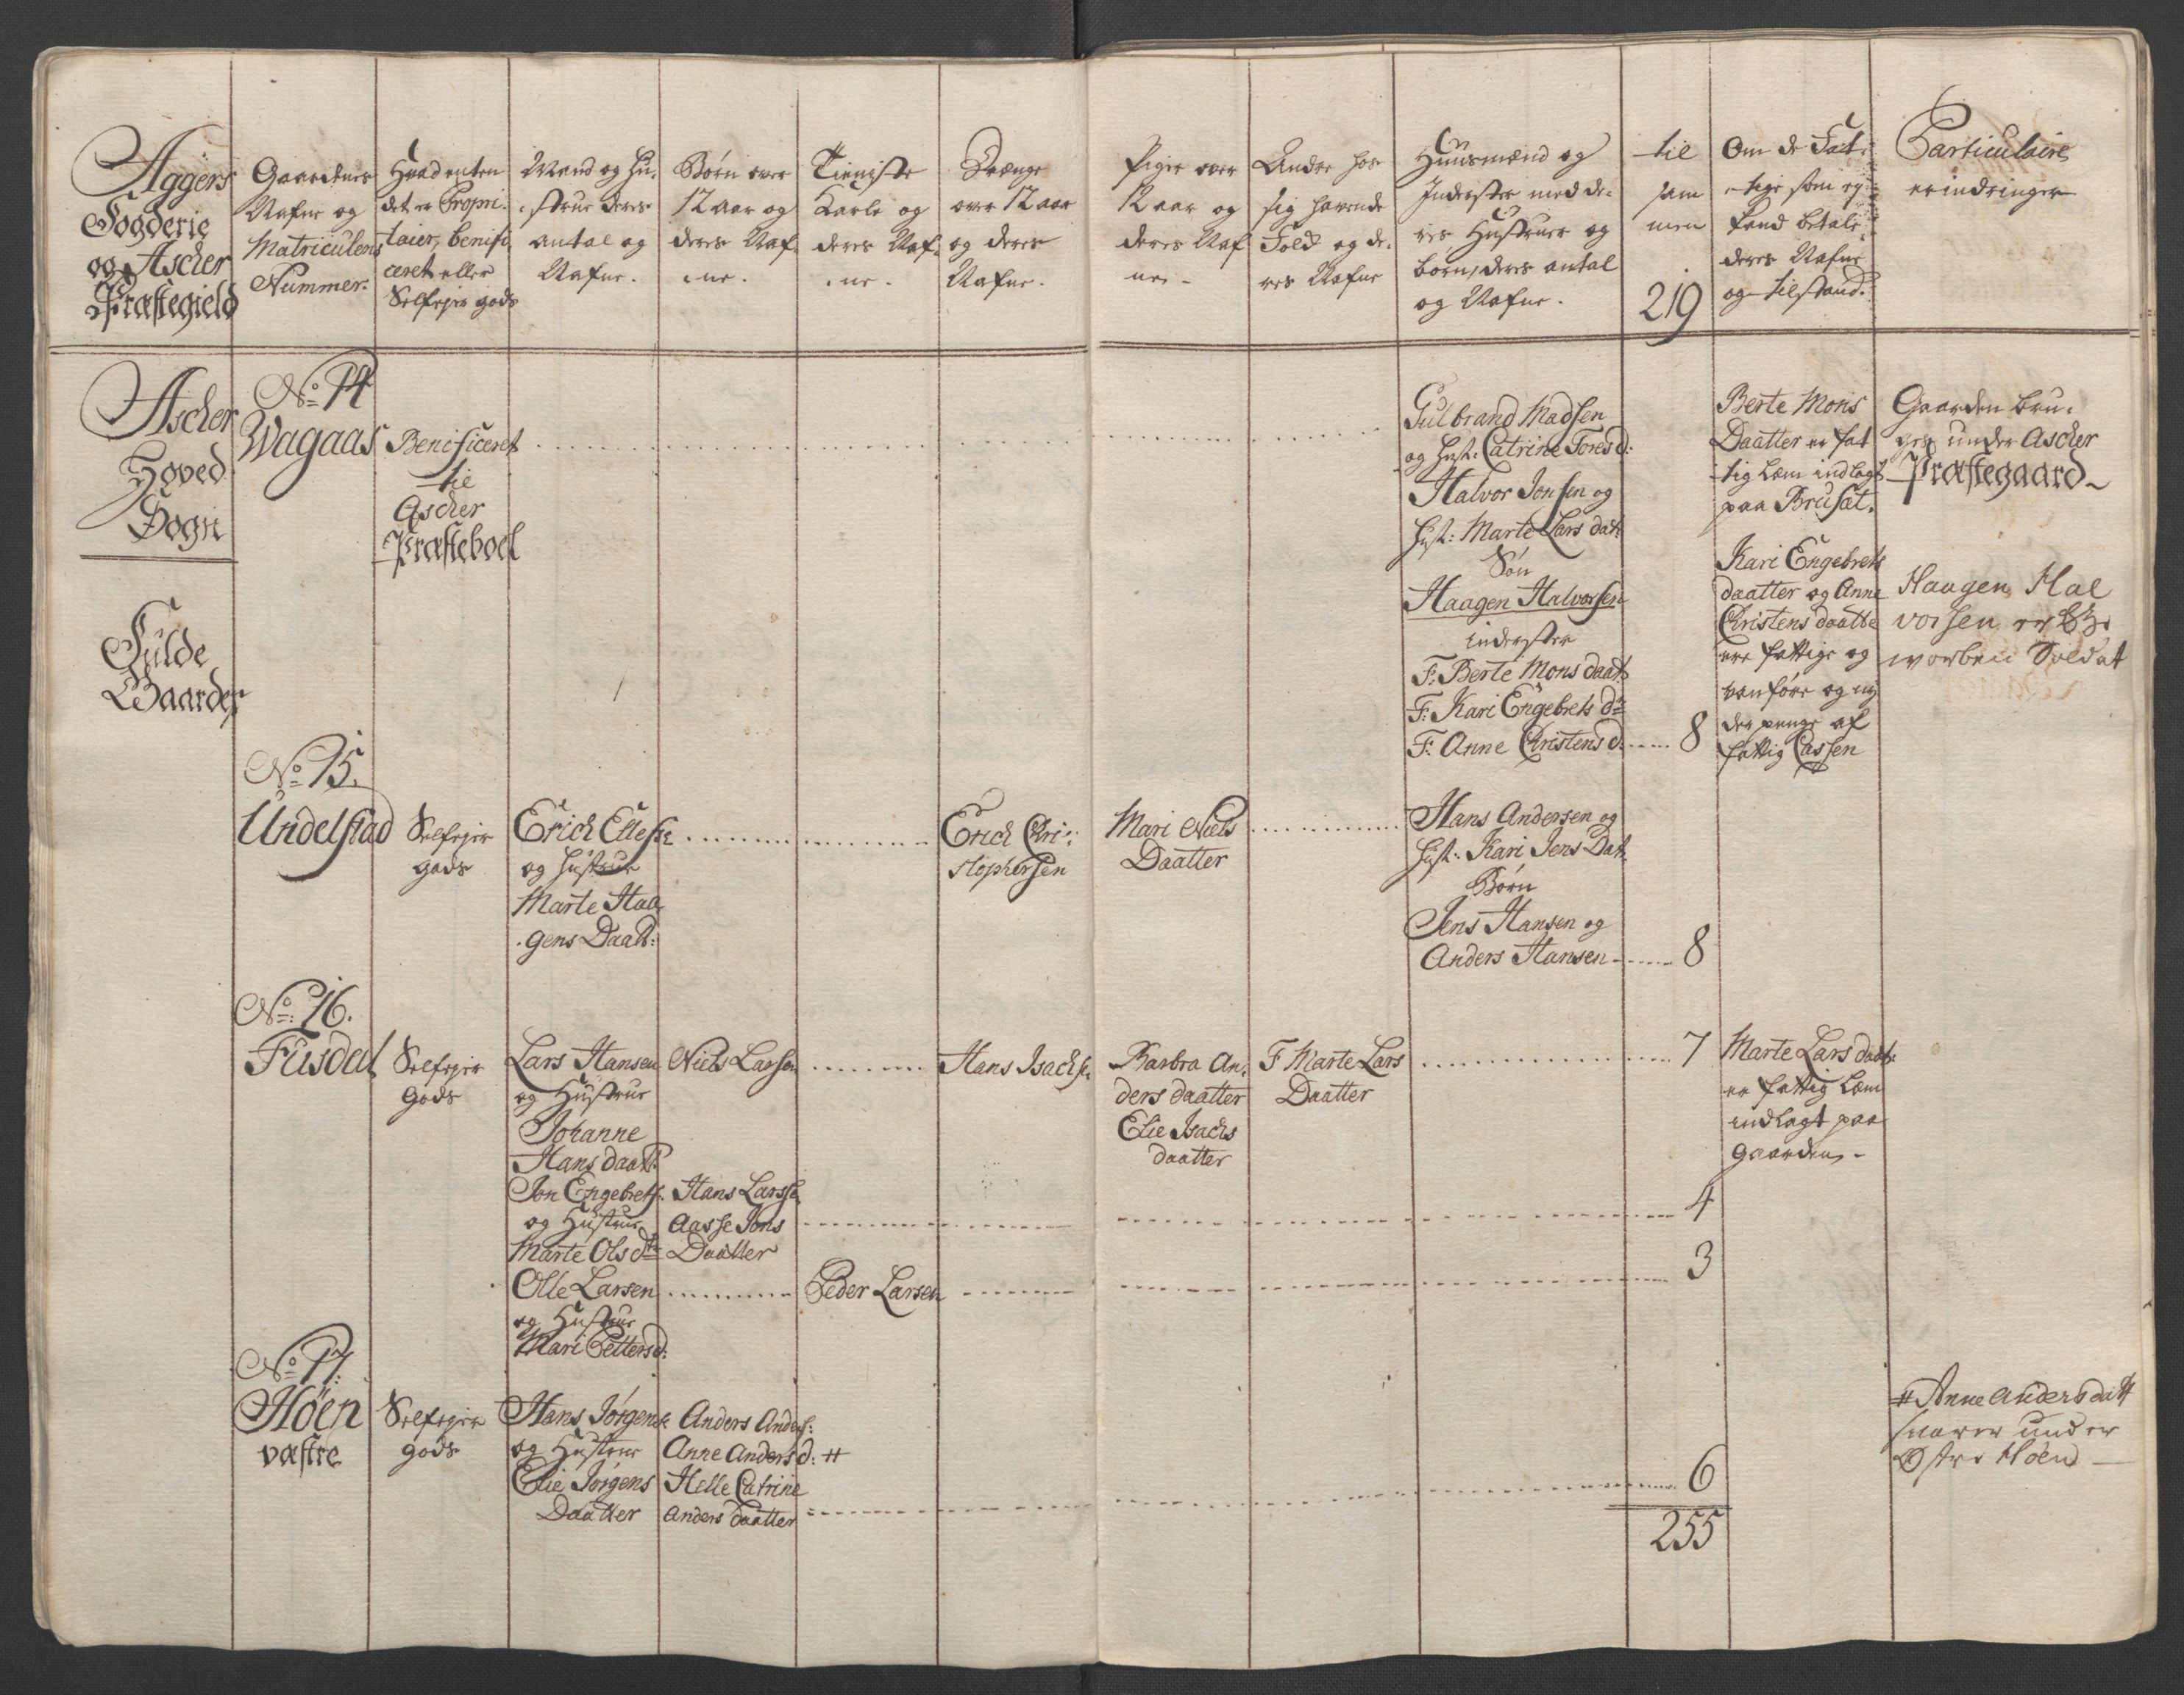 Aggers
Fogderie
og Ascher
Præstegield
Gaardenes
Nafne og
Matriculens
Nummer.
Hvad enten
det er Propri-
taier, benifi-
ceret eller
Selfejer gods
Mand og Hu-
strue deres
antal og
Nafne.
Børn over
12 aar og
deres Naf-
ne.
Tieniste
Karle og
deres Naf-
ne.
Drænge
over 12 aar
og deres
Nafne.
Piger over
12 aar og
deres Naf
ne
Andre hos
sig havende
Fold og de-
res Nafne
Huusmænd og
Inderster med de-
res Hustruer og
børn, deres antal
og Nafne.
til
sam
men
219
Om de Fat-
tige som ey
kand betale,
deres Nafne
og tilstand.
Particulaire
erindringer
Ascher
Hoved
Sogn
Fulde
Gaarder
No 14
Wagaas
Benificeret
til
Ascher
Præsteboel
Gulbrand Madsen
og Hust: Catrine Toresd:
Halvor Jonsen og
Hust: Marte Lars dat:
Søn
Haagen Halvorsen
inderster
F: Berte Mons daat
F: Kari Engebrets dr
F: Anne Christens d. 8
Berte Mons
Daatter er fat
tig Lem indlagt
paa Brusæt.
Kari Engebrets
daatter og Anne
Christens daatte
ere fattige og
vanføre og ny
der penge af
fattig Cassen
Gaarden bru-
ges under Ascher
Præstegaard
Haagen Hal
vorsen er
worben Soldat
No 15.
Undelstad
Selfejer
gods
Erich Ellefse
og Hustrue
Marte Haa-
gens Daatt:
Erich Chri-
stophersen
Mari Niels
Daatter
Hans Andersen og
Hust: Kari Jens Dat.
Børn
Jens Hansen og
Anders Hansen 8
No: 16.
Fusdal
Selfejer
Gods
Lars Hansen
og Hustrue
Johanne
Hans daatt:
Niels Larsen
Hans Isachs:
Barbra An-
ders daatter
Elie Isachs
daatter
F Marte Lars
Daatter
7
Marte Lars daat:
er fattig Lem
indlagt paa
Gaarden
Jon Engebrets:
og Hustrue
Marte Ols dtr
Hans Larsse
Aasse Jons
Daatter
4
Olle Larsen
og Hustrue
Mari Petters d:
Peder Larsen
3
No 17:
Høen
væstre
Selfejer
gods
Hans Jørgens
og Hustrue
Elie Jørgens
Daatter
Anders Anders:
Anne Anders d: #
Helle Catrine
Anders daatter
6
255
# Anne Anders datt
svarer under
Østre Høen